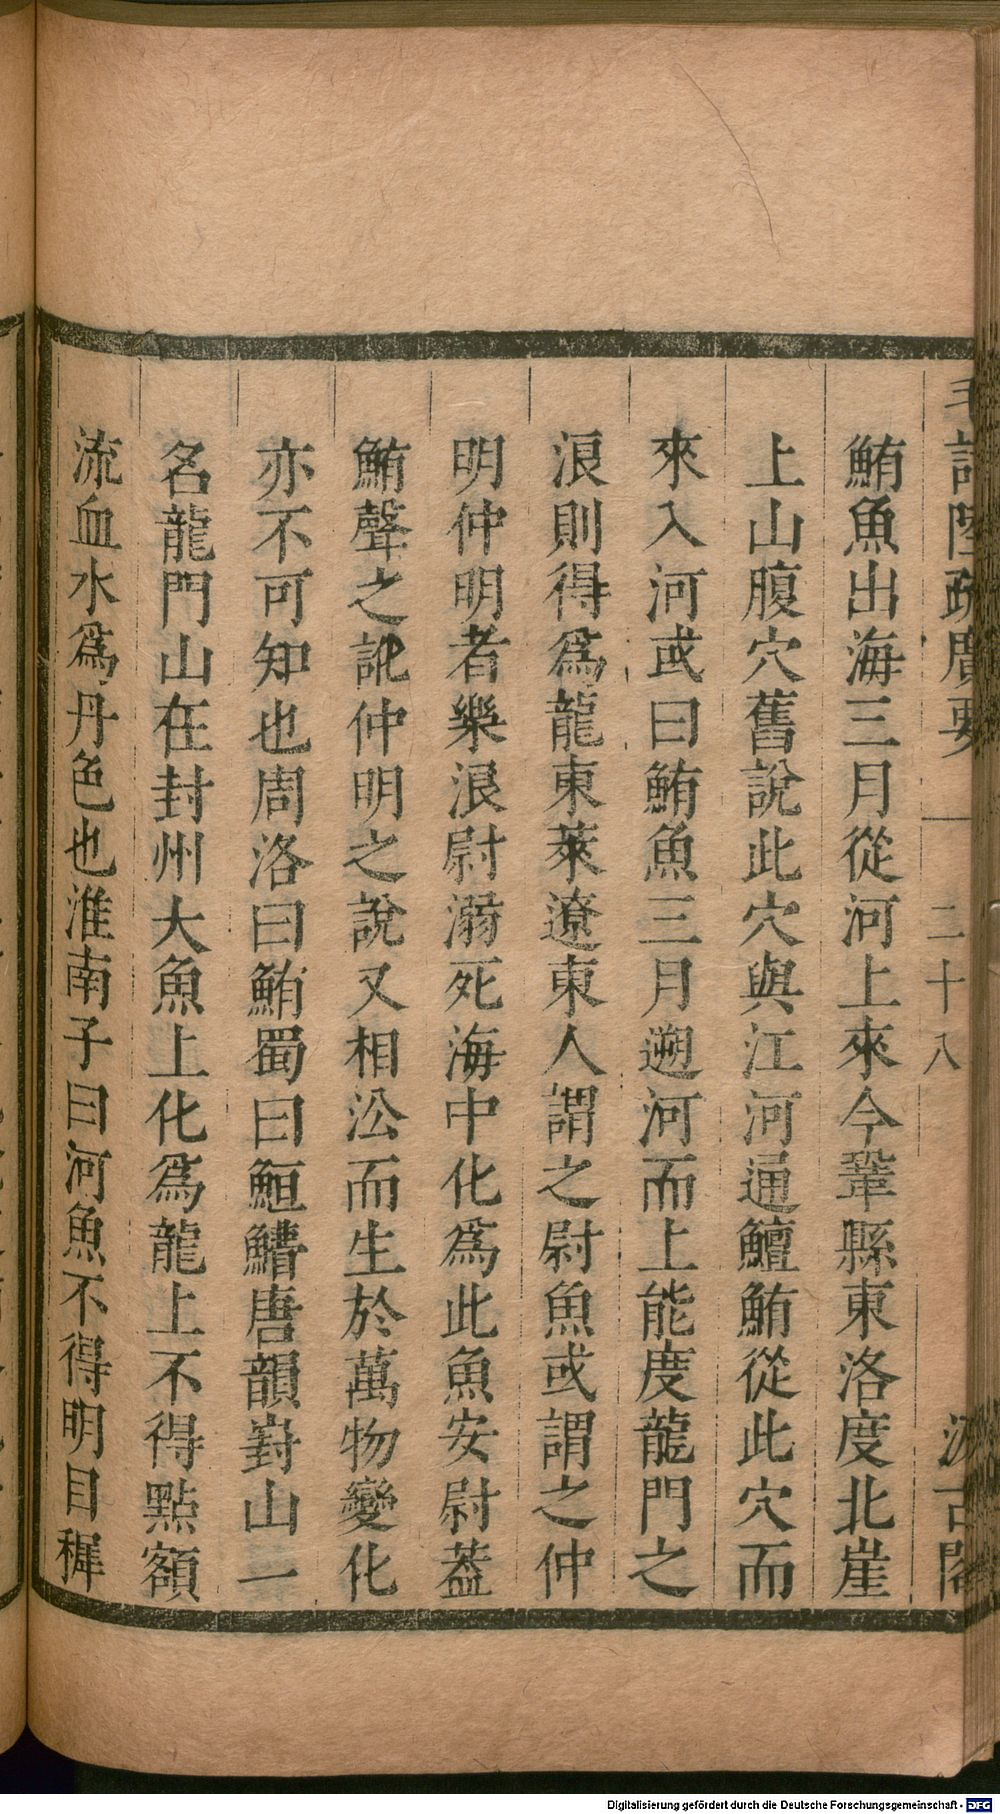 毛詩陸疏廣要 二十八 汲古閣
鮪魚出海三月從河上來今鞏縣東洛度北崖
上山腹穴舊說此穴與江河通鱣鮪從此穴而
來入河或曰鮪魚三月遡河而上能度龍門之
浪則得爲龍東萊遼東人謂之尉魚或謂之仲
明仲明者樂浪尉溺死海中化爲此魚安尉葢
鮪聲之訛仲明之說又相㳂而生於萬物變化
亦不可知也周洛曰鮪蜀曰䱭䲛唐韻崶山一
名龍門山在封州大魚上化爲龍上不得點額
流血水爲丹色也淮南子曰河魚不得明目穉
Digitalisierung gefördert durch die Deutsche Forschungsgemeinschaft - DFG